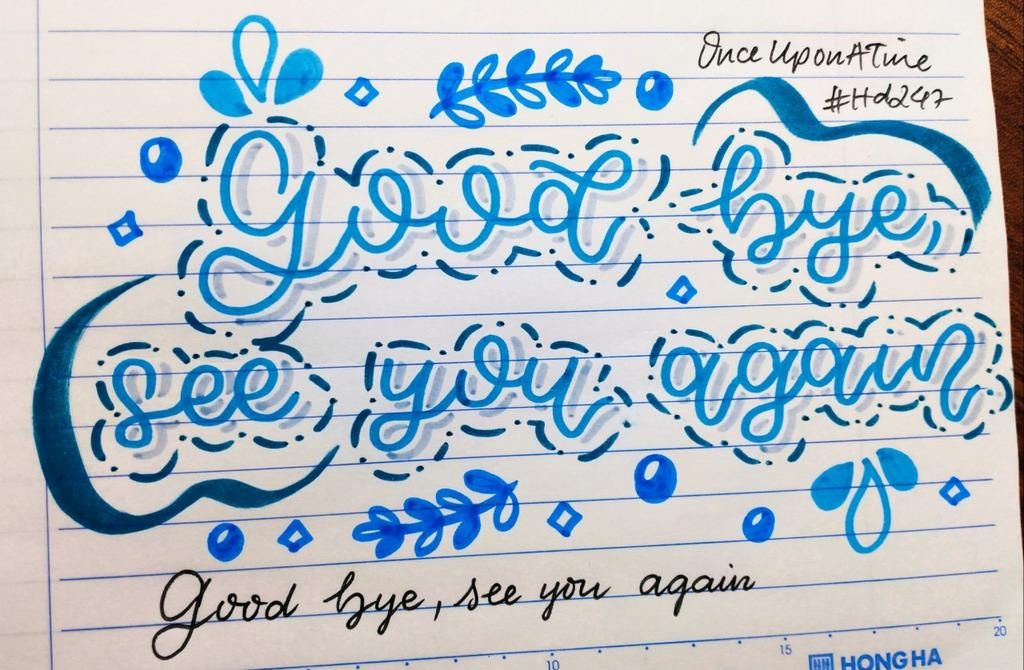 OnceUponATime
#Hd247
Good bye,
see you again
Good bye, see you again
10 15 20
HONG HA